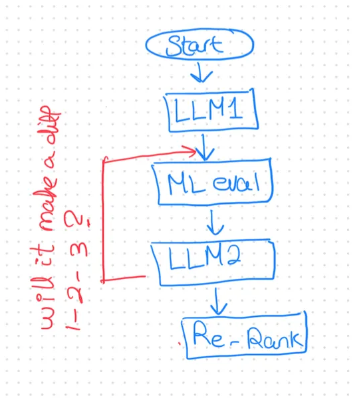 Start
LLM1
ML eval
LLM2
Re-Rank
will it make a diff
1-2-3?